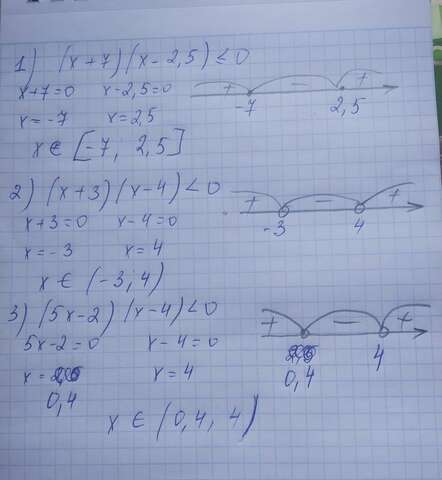 1) (x+7)(x-2,5)≤0
x+7=0 x-2,5=0
x=-7 x=2,5
+ - +
-7 2,5
x ∈ [-7, 2,5]
2) (x+3)(x-4)<0
x+3=0 x-4=0
x=-3 x=4
+ - +
-3 4
x ∈ (-3; 4)
3) (5x-2)(x-4)<0
5x-2=0 x-4=0
x= 0,4 x=4
+ - +
0,4 4
x ∈ (0,4, 4)